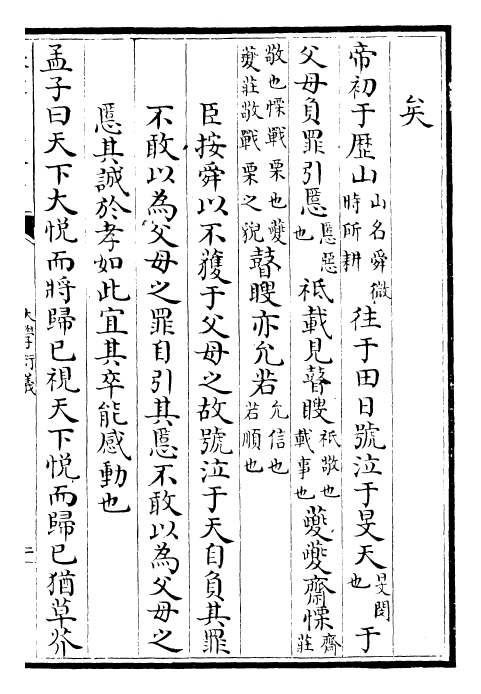 矣
帝初于歴山山名舜微時所耕往于田日號泣于旻天旻閔也于
父母負罪引慝慝惡也祗載見瞽瞍祗敬也載事也夔夔齋慄齋莊
敬也慄戰栗也夔夔莊敬戰栗之貌瞽瞍亦允若允信也若順也
臣按舜以不獲于父母之故號泣于天自負其罪
不敢以為父母之罪自引其慝不敢以為父母之
慝其誠於孝如此宜其卒能感動也
孟子曰天下大悅而將歸已視天下悅而歸已猶草芥
大學衍義
二